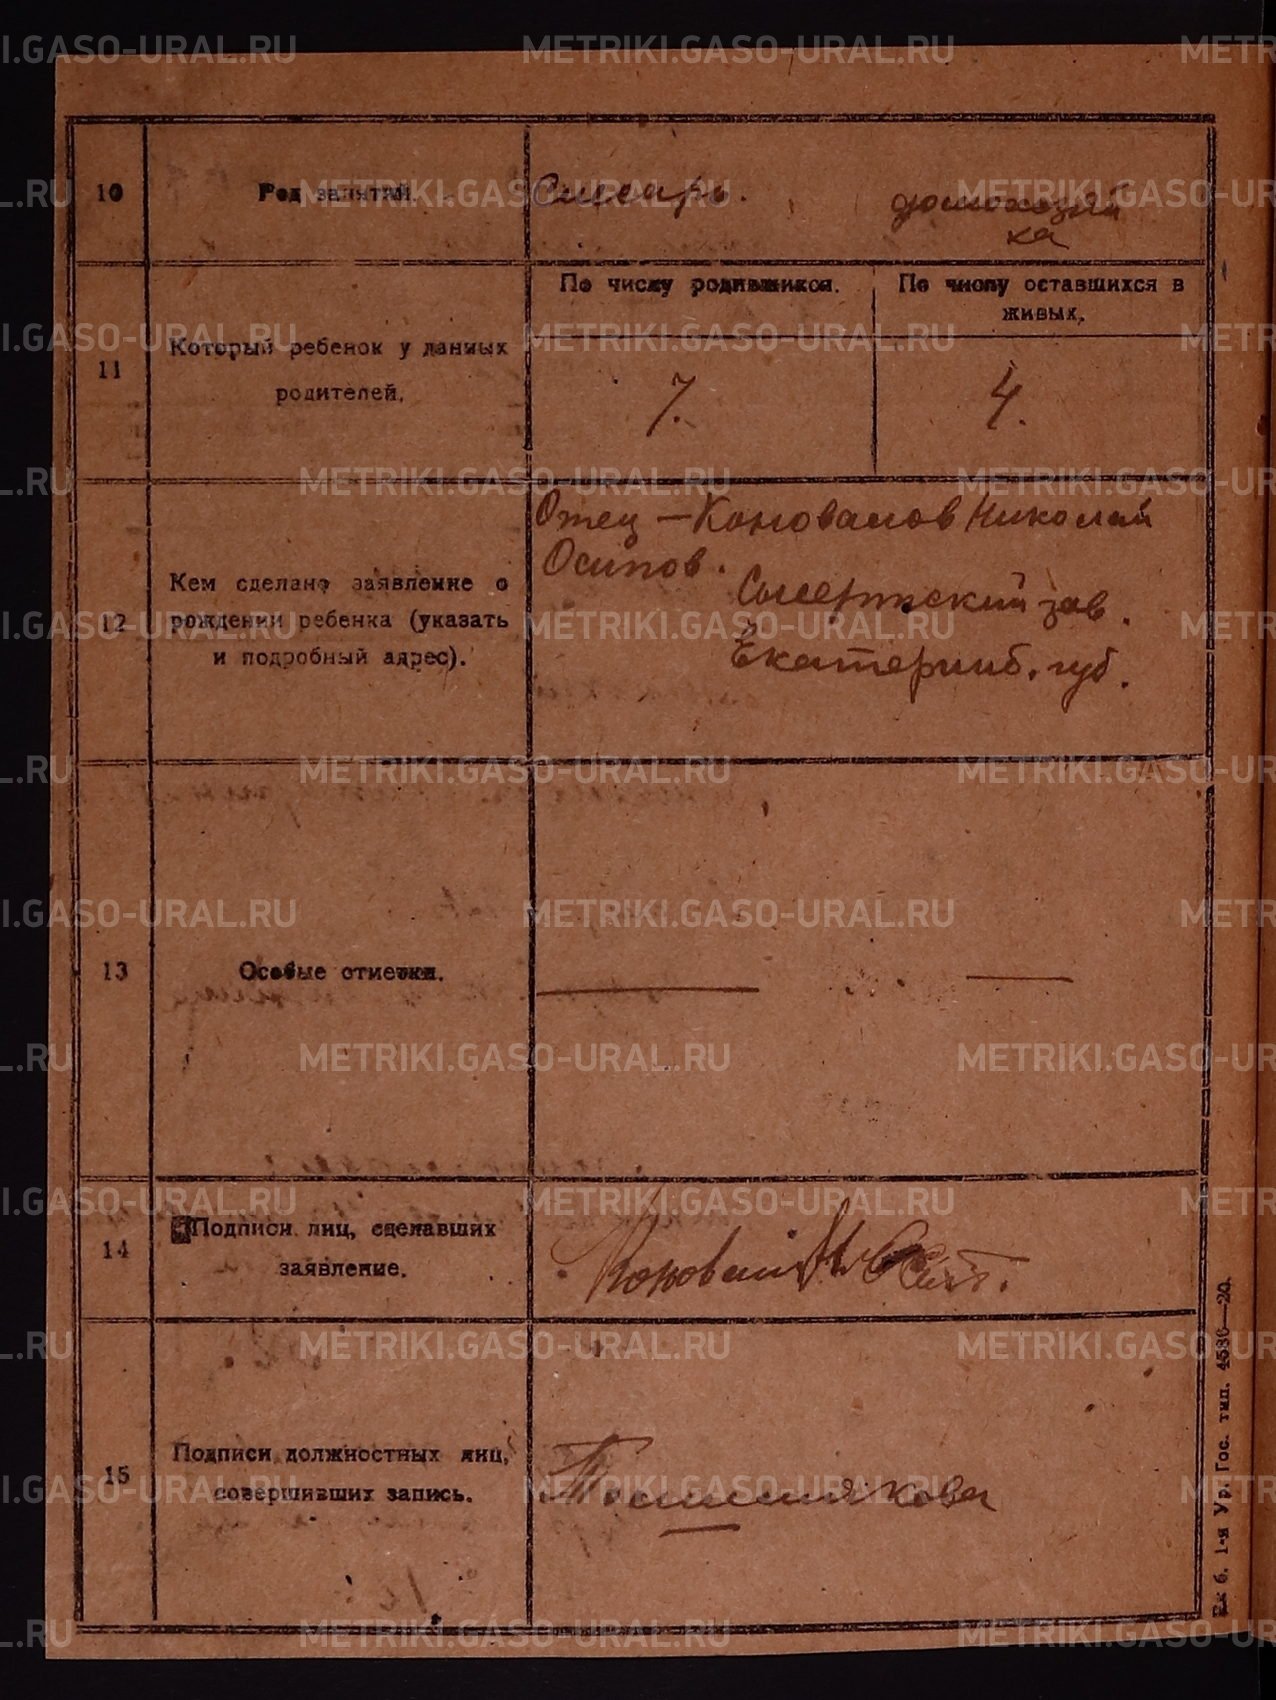 METRIKI.GASO-URAL.RU
10
Род занятий.
Слесарь.
домохозяй
ка
11
Который ребенок у данных
родителей.
По числу родившихся.
По числу оставшихся в
живых.
7.
4.
12
Кем сделано заявление о
рождении ребенка (указать
и подробный адрес).
Отец – Коновалов Николай
Осипов.
Сысертский зав.
Екатеринб. губ.
13
Особые отметки.
14
Подписи лиц, сделавших
заявление.
15
Подписи должностных лиц,
совершивших запись.
Ек б. 1-я Ур. Гос. тип. 4586—20.